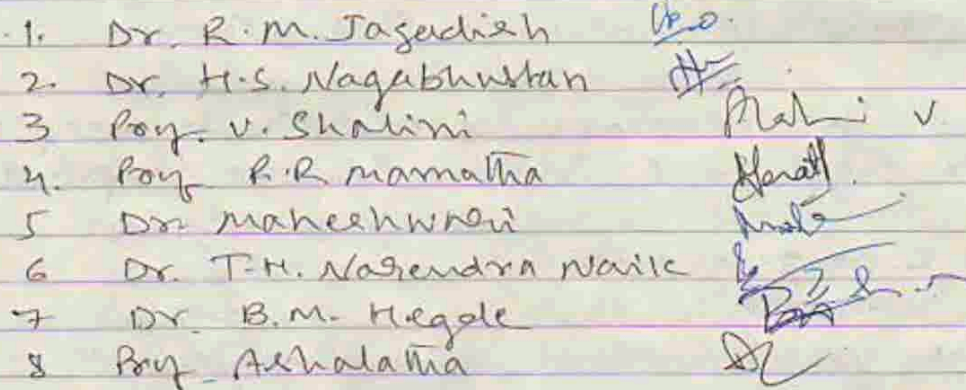 1. Dr. R.M. Jagadish
2. Dr. H.S. Nagabhushan
3 Prof. V. Shalini Shalini V
4. Prof R.R mamatha
5 Dr. maheshwari
6 Dr. T.H. Narendra Naik
7 Dr. B.M. Hegde
8 Prof. Ashalatha